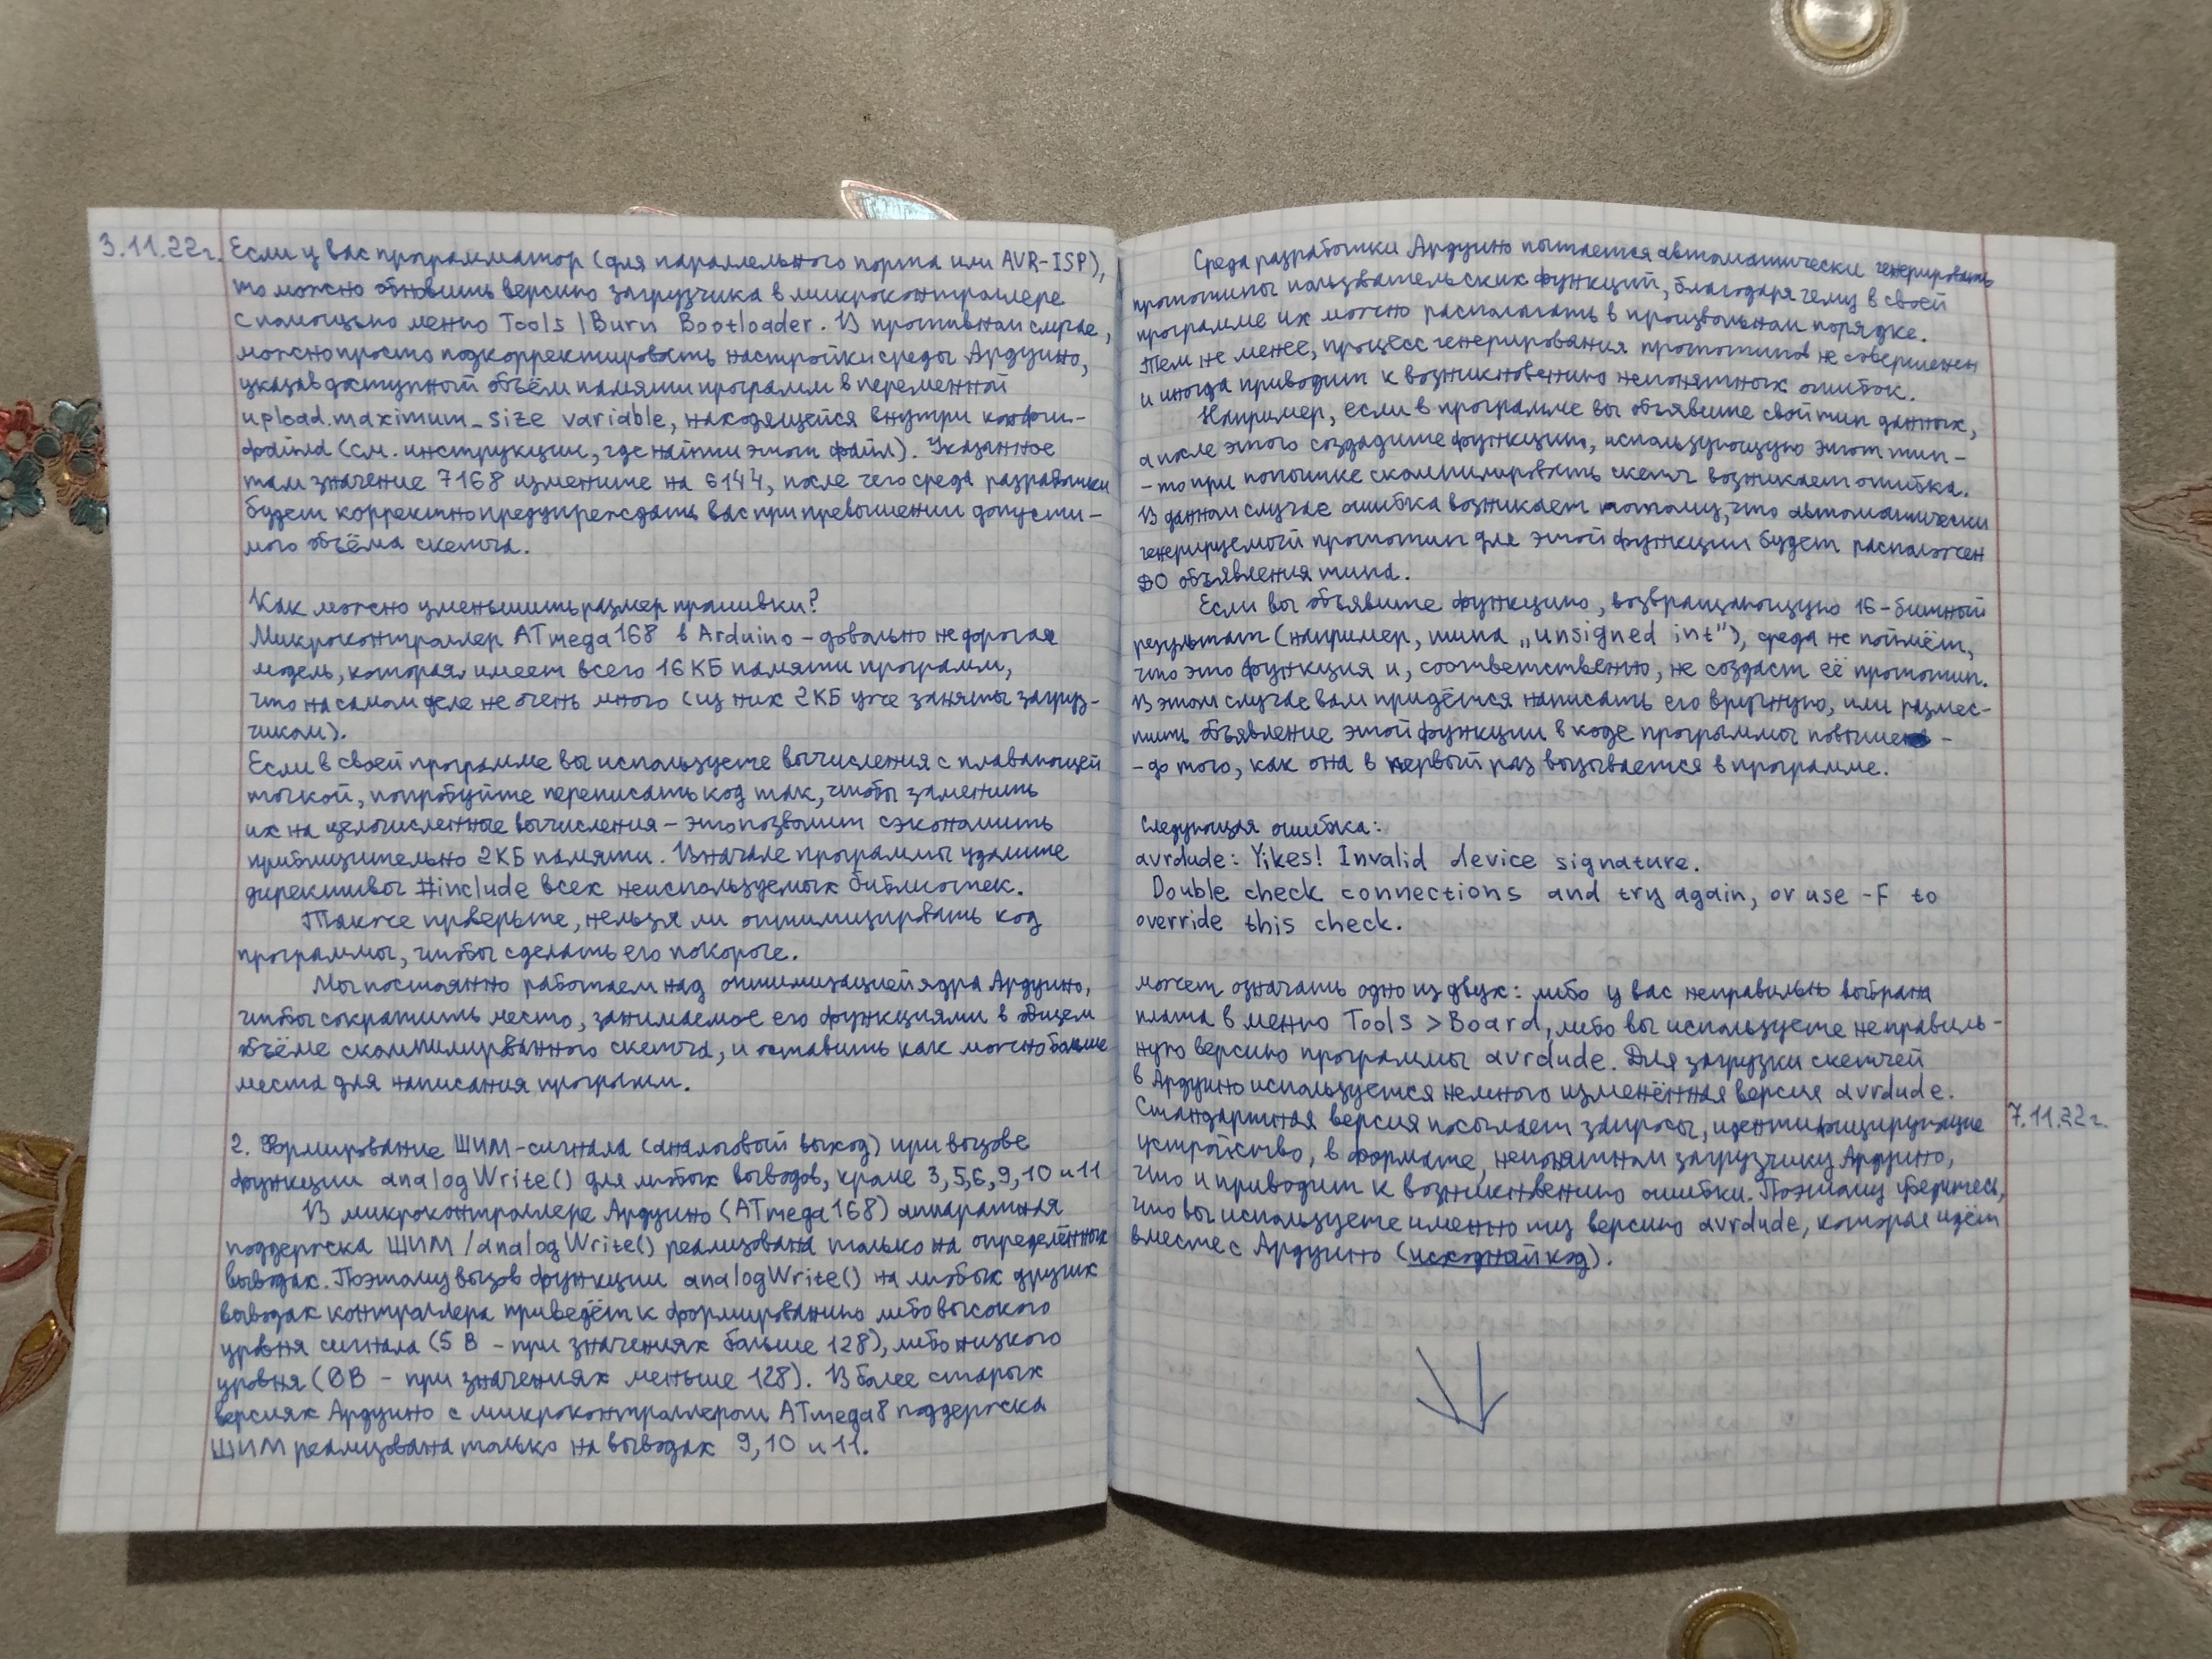 3.11.22г. Если у вас программатор (для параллельного порта или AVR-ISP),
то можно обновить версию загрузчика в микроконтроллере
с помощью меню Tools | Burn Bootloader. В противном случае,
можно просто подкорректировать настройки среды Ардуино,
указав доступный объём памяти программ в переменной
upload.maximum_size variable, находящейся внутри конфиг-
файла (см. инструкции, где найти этот файл). Указанное
там значение 7168 измените на 6144, после чего среда разработки
будет корректно предупреждать вас при превышении допусти-
мого объёма скетча.
Как можно уменьшить размер прошивки?
Микроконтроллер ATmega168 в Arduino - довольно не дорогая
модель, которая имеет всего 16 КБ памяти программ,
что на самом деле не очень много (из них 2 КБ уже заняты загруз-
чиком).
Если в своей программе вы используете вычисления с плавающей
точкой, попробуйте переписать код так, чтобы заменить
их на целочисленные вычисления - это позволит сэкономить
приблизительно 2 КБ памяти. В начале программы удалите
директивы #include всех неиспользуемых библиотек.
Также проверьте, нельзя ли оптимизировать код
программы, чтобы сделать его покороче.
Мы постоянно работаем над оптимизацией ядра Ардуино,
чтобы сократить место, занимаемое его функциями в общем
объёме скомпилированного скетча, и оставить как можно больше
места для написания программ.
2. Формирование ШИМ-сигнала (аналоговый выход) при вызове
функции analogWrite() для любых выводов, кроме 3,5,6,9,10 и 11
В микроконтроллере Ардуино (ATmega168) аппаратная
поддержка ШИМ/analogWrite() реализована только на определённых
выводах. Поэтому вызов функции analogWrite() на любых других
выводах контроллера приведёт к формированию либо высокого
уровня сигнала (5 В - при значениях больше 128), либо низкого
уровня (0В - при значениях меньше 128). В более старых
версиях Ардуино с микроконтроллером ATmega8 поддержка
ШИМ реализована только на выводах 9, 10 и 11.
Среда разработки Ардуино пытается автоматически генерировать
прототипы пользвательских функций, благодаря чему в своей
программе их можно располагать в произвольном порядке.
Тем не менее, процесс генерирования прототипов не совершенен
и иногда приводит к возникновению непонятных ошибок.
Например, если в программе вы объявите свой тип данных,
а после этого создадите функцию, использующую этот тип -
- то при попытке скомпилировать скетч возникает ошибка.
В данном случае ошибка возникает потому, что автоматически
генерируемый прототип для этой функции будет расположен
ДО объявления типа.
Если вы объявите функцию, возвращающую 16-битный
результат (например, типа „unsigned int"), среда не поймёт,
что это функция и, соответственно, не создаст её прототип.
В этом случае вам придётся написать его вручную, или размес-
тить объявление этой функции в коде программы повыше -
- до того, как она в первый раз вызывается в программе.
Следующая ошибка:
avrdude: Yikes! Invalid device signature.
Double check connections and try again, or use -F to
override this check.
может означать одно из двух: либо у вас неправильно выбрана
плата в меню Tools > Board, либо вы используете неправиль-
ную версию программы avrdude. Для загрузки скетчей
в Ардуино используется немного изменённая версия avrdude.
Стандартная версия посылает запросы, идентифицирующие 7.11.22г.
устройство, в формате, непонятном загрузчику Ардуино,
что и приводит к возникновению ошибки. Поэтому убедитесь,
что вы используете именно ту версию avrdude, которая идёт
вместе с Ардуино (исходный код).